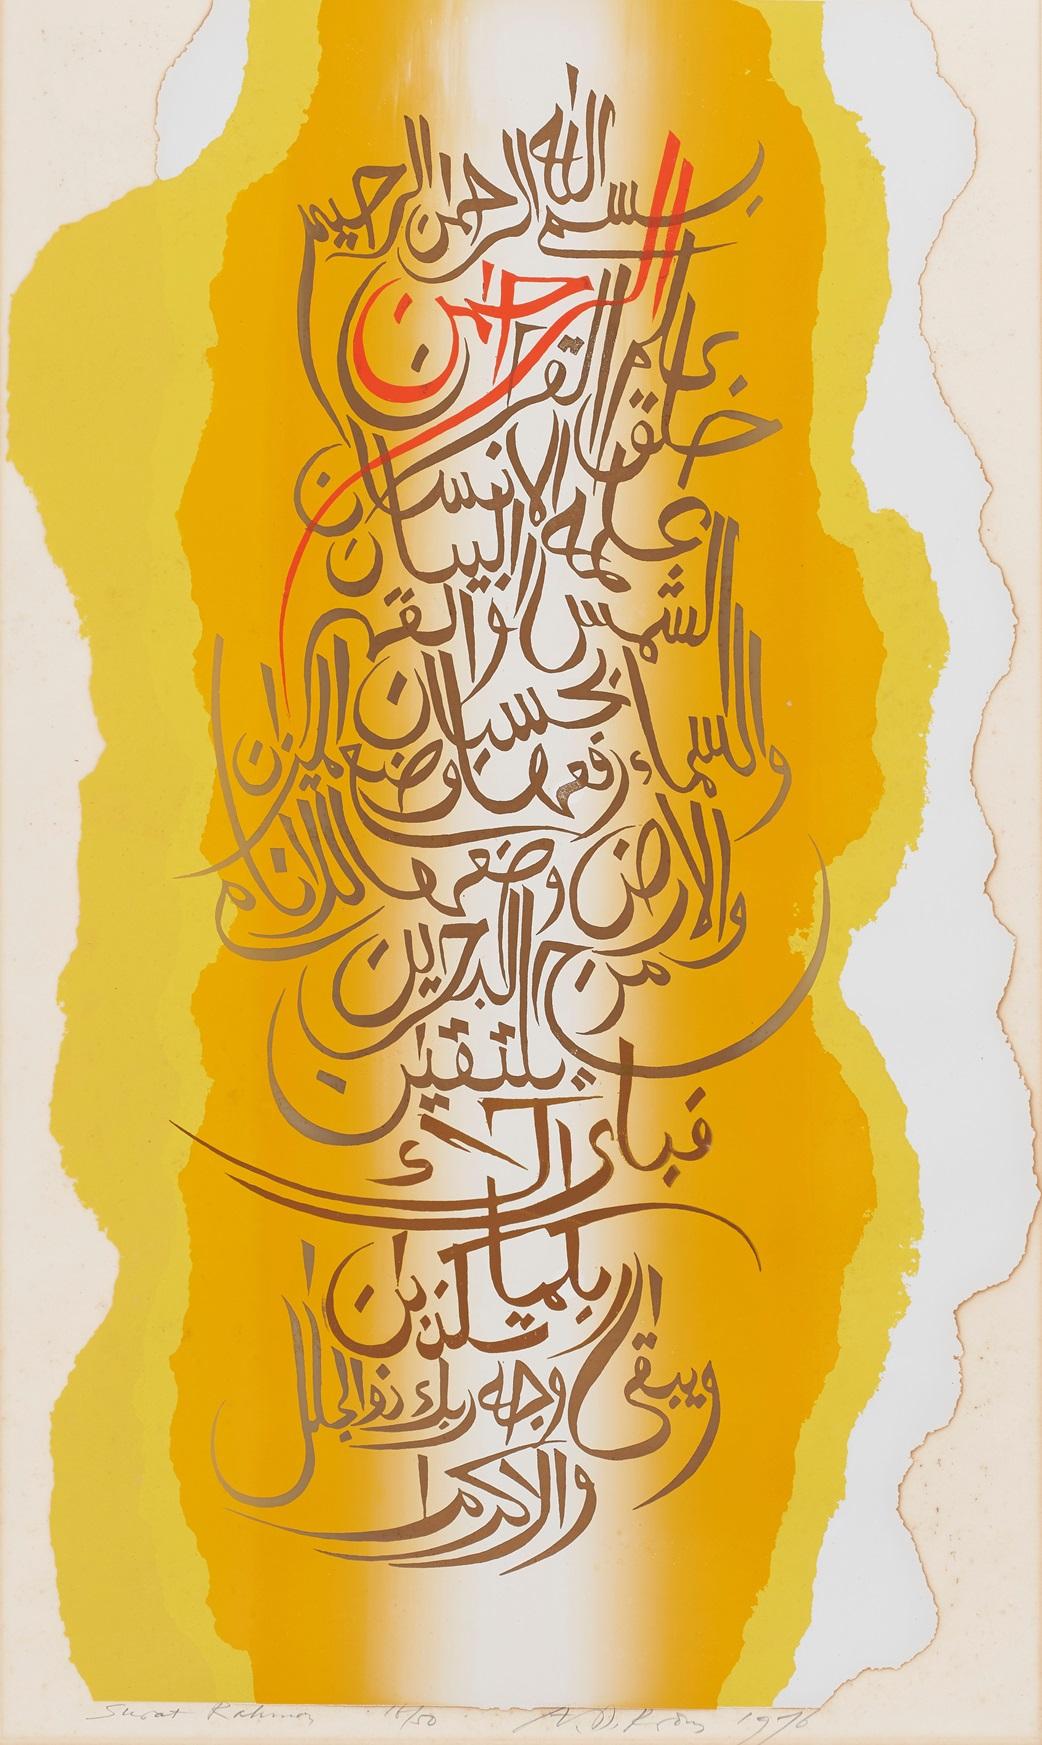 بسم الله الرحمن الرحيم
الرحمن
علم القران
خلق الانسان
علمه البيان
الشمس والقمر
بحسبان
والسماء رفعها ووضع الميزان
والارض وضعها للانام
مرج البحرين
يلتقين
فباى الاء
ربكما تكذبان
ويبقى وجه ربك ذوالجلل
والاكرام
Surat Rahman 16/50 1976